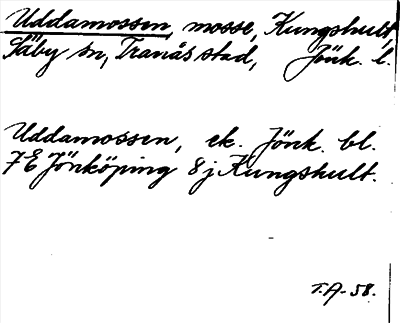 Uddamossen, mosse, Kungshult,
Säby sn, Tranås stad, Jönk. l.
Uddamossen, ek. Jönk. bl.
7E Jönköping 8j Kungshult.
T.A-58.